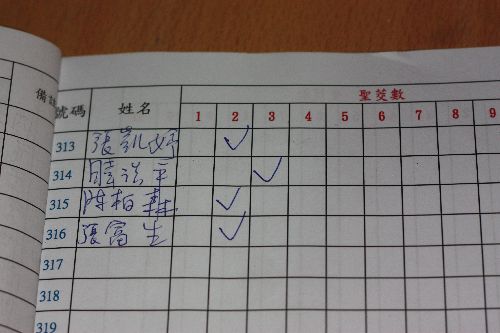 備註
聖筊數
號碼 姓名 1 2 3 4 5 6 7 8 9
313 張凱婷
314
315 陳柏霖
316 張富生
317
318
319